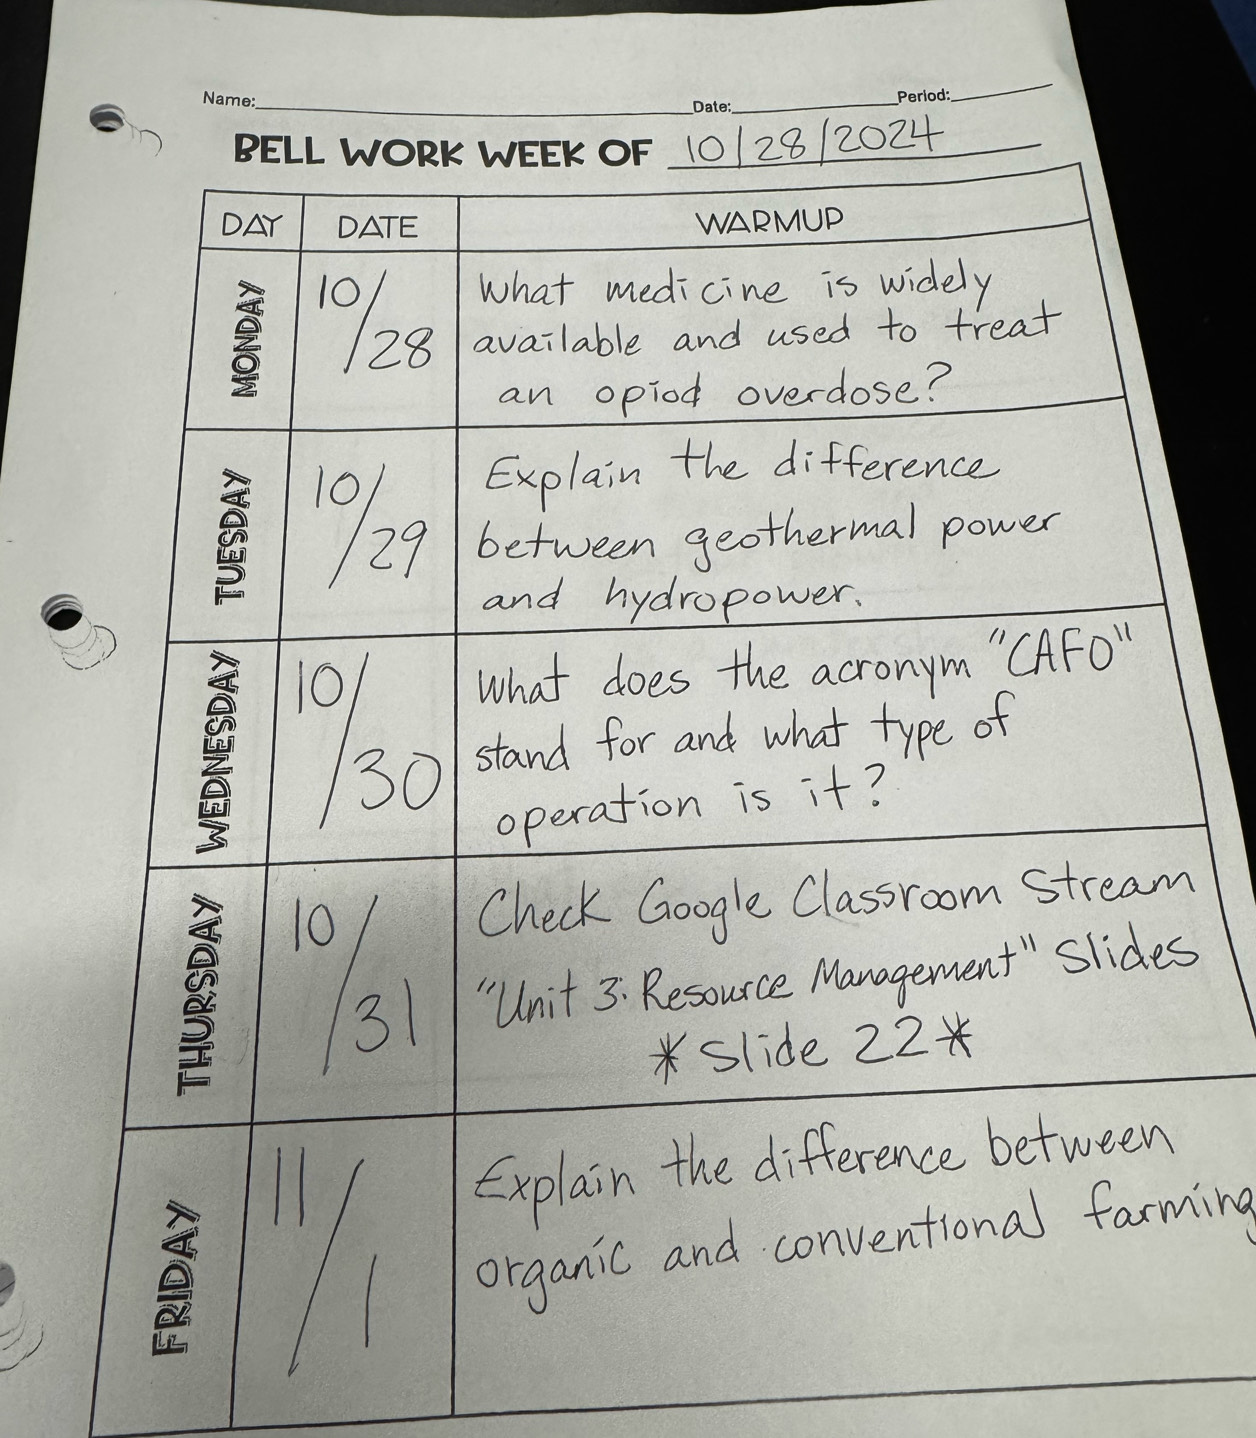 Name: Date: Period:
BELL WORK WEEK OF 10/28/2024
DAY DATE WARMUP
MONDAY
10/28
What medicine is widely
available and used to treat
an opiod overdose?
TUESDAY
10/29
Explain the difference
between geothermal power
and hydropower.
WEDNESDAY
10/30
What does the acronym "CAFO"
stand for and what type of
operation is it?
THURSDAY
10/31
Check Google Classroom Stream
"Unit 3: Resource Management" Slides
*Slide 22*
FRIDAY
11/1
Explain the difference between
organic and conventional farming